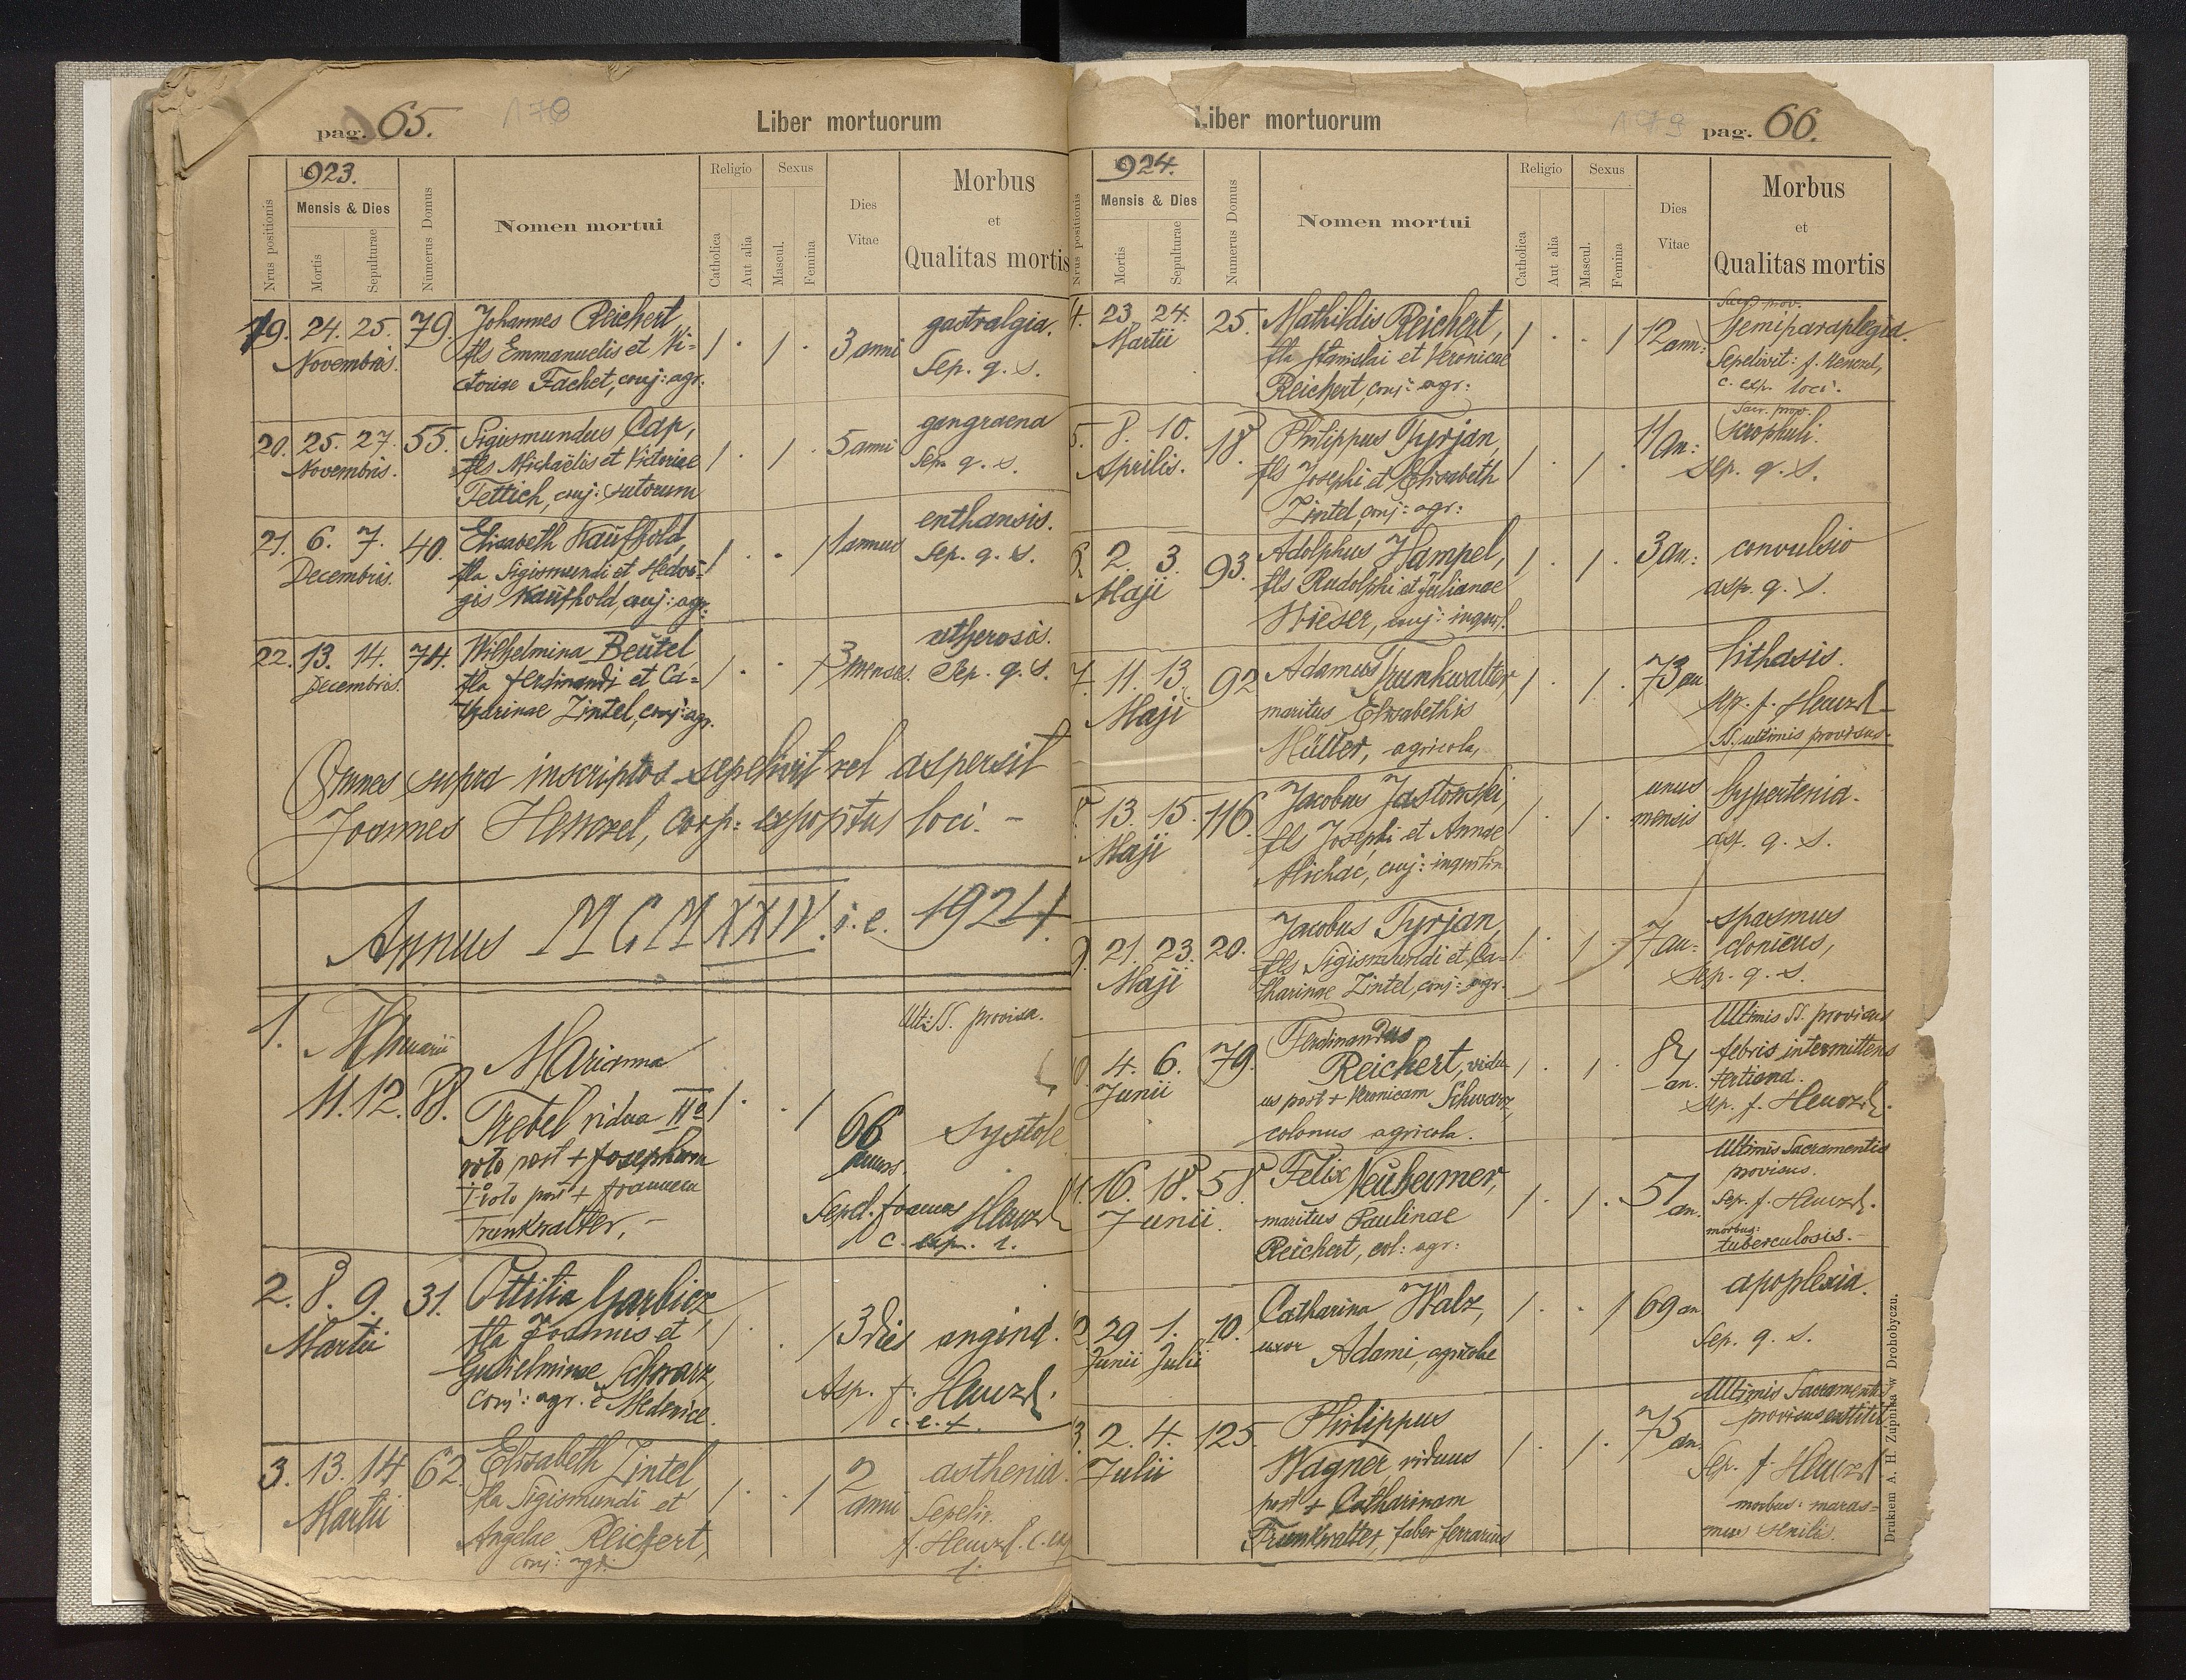 pag. 65. 178
Liber mortuorum
923.
Nrus positionis
Mensis & Dies
Mortis
Sepulturae
Numerus Domus
Nomen mortui
Religio
Catholica
Aut alia
Sexus
Mascul.
Femina
Dies
Vitae
Morbus
et
Qualitas mortis
19. 24. 25. 79. Johannes Reichert, 3 anni gastralgia.
Novembris. fls Emmanuelis et Vi= Sep. q. s.
ctoriae Fachet, conj: agr.
20. 25. 27. 55. Sigismundus Cap, 5 anni gangraena
Novembris. fls Michaëlis et Victoriae Sep. q. s.
Fettich, conj: sutorum
21. 6. 7. 40. Elisabeth Kaufhold, 1 annus enthansis.
Decembris. fla Sigismundi et Hedvi= Sep. q. s.
gis Kaufhold, conj: agr.
22. 13. 14. 74. Wilhelmina Beutel 3 menses. atherosis.
Decembris. fla Ferdinandi et Ca= Sep. q. s.
tharinae Zintel, conj: agr.
Omnes supra inscriptos sepelivit vel aspersit
Joannes Henzel, coop: expositus loci. –
Annus MCMXXIV. i. e. 1924.
1. Januarii Ult: SS. provisa.
11. 12. 88. Marianna
Trebel vidua IIo
voto post + Josephum 66 annos systole
Io voto post + Joannem
Trunkwalter. – Sepel. Joannes Henzel
c. exp. l.
2. 8. 9. 31. Ottilia Garbicz
Martii fla Joannis et 3 dies angina.
Guilelminae Schwarz, Asp. J. Henzel.
conj: agr. e Medenice. c. e. l.
3. 13. 14. 62. Elisabeth Zintel 2 anni asthenia.
Martii fla Sigismundi et Sepeliv.
Angelae Reichert, J. Henzel. c. ex
conj: agr. l.
Liber mortuorum
pag. 66.
924.
Nrus positionis
Mensis & Dies
Mortis
Sepulturae
Numerus Domus
Nomen mortui
Religio
Catholica
Aut alia
Sexus
Mascul.
Femina
Dies
Vitae
Morbus
et
Qualitas mortis
4. 23. 24. 25. Mathildis Reichert, 12 ann: Sacr. prov.
Martii fla Stanislai et Veronicae Hemiparaplegia.
Reichert, conj: agr: Sepelivit: J. Henzel,
c. exp. loci.
5. 8. 10. 18. Philippus Tyrjan, 11 an: Sacr. prov.
Aprilis. fls Josephi et Elisabeth Scrophuli.
Zintel, conj: agr: Sep. q. s.
6. 2. 3. 93. Adolphus Hampel, 3 an: convulsio
Maji fls Rudolphi et Julianae asp. q. s.
Wieser, conj: inquil.
7. 11. 13. 92 Adamus Trunkwalter 73 an lithasis.
Maji maritus Elisabethis Sep. J. Henzel
Müller, agricola, SS. ultimis provisus.
8. 13. 15. 116. Jacobus Jastowski, unus mensis hypertenia.
Maji fls Josephi et Annae asp. q. s.
Michać, conj: inquilin
9. 21. 23. 20. Jacobus Tyrjan, 7 an: spasmus
Maji fls Sigismundi et Ca= clonicus,
tharinae Zintel, conj: agr. Sep. q. s.
10. 4. 6. 79. Ferdinandus 84 an. Ultimis SS. provisus
Junii Reichert, vidu= febris intermittens
us post + Veronicam Schwarz, tertiana.
colonus agricola. Sep. J. Henzel.
11. 16. 18. 58 Felix Neuhamer, 51 an. Ultimis Sacramentis
Junii. maritus Paulinae provisus.
Reichert, col: agr: Sep. J. Henzel.
morbus:
tuberculosis. –
12. 29 1. 10. Catharina Walz, 69 an apoplexia.
Junii Julii uxor Adami, agricolae Sep. q. s.
13. 2. 4. 125. Philippus 75 an. Ultimis Sacramentis
Julii Wagner, viduus provisus exstitit
post + Catharinam Sep. J. Henzel
Trunkwalter, faber ferrarius morbus: maras=
mus senilis.
Drukiem A. H. Żupnika w Drohobyczu.